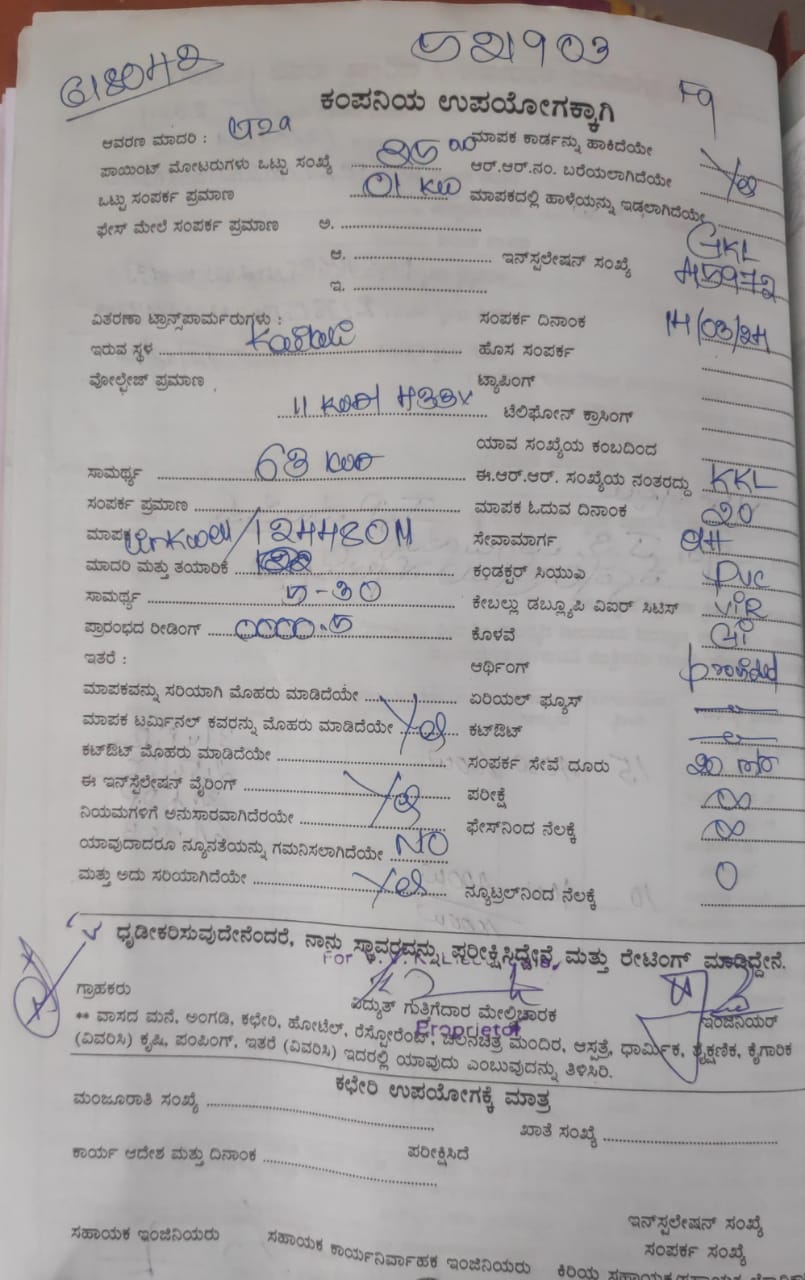 521903
618042
F9
ಕಂಪನಿಯ ಉಪಯೋಗಕ್ಕಾಗಿ
ಆವರಣ ಮಾದರಿ : ಮಾಪಕ ಕಾರ್ಡನ್ನು ಹಾಕಿದೆಯೇ
ಪಾಯಿಂಟ್ ಮೋಟರುಗಳು ಒಟ್ಟು ಸಂಖ್ಯೆ ಆರ್.ಆರ್.ನಂ. ಬರೆಯಲಾಗಿದೆಯೇ Yes
ಒಟ್ಟು ಸಂಪರ್ಕ ಪ್ರಮಾಣ 01 KW ಮಾಪಕದಲ್ಲಿ ಹಾಳೆಯನ್ನು ಇಡಲಾಗಿದೆಯೇ
ಫೇಸ್ ಮೇಲೆ ಸಂಪರ್ಕ ಪ್ರಮಾಣ ಅ.
ಆ. ಇನ್‌ಸ್ಪಲೇಷನ್ ಸಂಖ್ಯೆ GKL 45972
ಇ.
ವಿತರಣಾ ಟ್ರಾನ್ಸ್‌ಪಾರ್ಮರುಗಳು : ಸಂಪರ್ಕ ದಿನಾಂಕ 14/03/24
ಇರುವ ಸ್ಥಳ ಹೊಸ ಸಂಪರ್ಕ
ವೋಲ್ಟೇಜ್ ಪ್ರಮಾಣ ಟ್ಯಾಪಿಂಗ್
11 433V ಟೆಲಿಫೋನ್ ಕ್ರಾಸಿಂಗ್
ಯಾವ ಸಂಖ್ಯೆಯ ಕಂಬದಿಂದ
ಸಾಮರ್ಥ್ಯ 63 ಈ.ಆರ್.ಆರ್. ಸಂಖ್ಯೆಯ ನಂತರದ್ದು KKL
ಸಂಪರ್ಕ ಪ್ರಮಾಣ ಮಾಪಕ ಓದುವ ದಿನಾಂಕ 20
ಮಾಪಕ /124480M ಸೇವಾಮಾರ್ಗ
ಮಾದರಿ ಮತ್ತು ತಯಾರಿಕೆ ಕಂಡಕ್ಟರ್ ಸಿಯುಎ PVC
ಸಾಮರ್ಥ್ಯ 5-30 ಕೇಬಲ್ಲು ಡಬ್ಲ್ಯೂಪಿ ವಿಐರ್ ಸಿಟಿಸ್ VIR
ಪ್ರಾರಂಭದ ರೀಡಿಂಗ್ 0000.5 ಕೊಳವೆ GI
ಇತರೆ : ಆರ್ಥಿಂಗ್
ಮಾಪಕವನ್ನು ಸರಿಯಾಗಿ ಮೊಹರು ಮಾಡಿದೆಯೇ ಏರಿಯಲ್ ಫ್ಯೂಸ್
ಮಾಪಕ ಟರ್ಮಿನಲ್ ಕವರನ್ನು ಮೊಹರು ಮಾಡಿದೆಯೇ Yes ಕಟ್‌ಔಟ್
ಕಟ್‌ಔಟ್ ಮೊಹರು ಮಾಡಿದೆಯೇ ಸಂಪರ್ಕ ಸೇವೆ ದೂರು
ಈ ಇನ್‌ಸ್ಟಲೇಷನ್ ವೈರಿಂಗ್ Yes ಪರೀಕ್ಷೆ ∞
ನಿಯಮಗಳಿಗೆ ಅನುಸಾರವಾಗಿದೆರಯೇ ಫೇಸ್‌ನಿಂದ ನೆಲಕ್ಕೆ ∞
ಯಾವುದಾದರೂ ನ್ಯೂನತೆಯನ್ನು ಗಮನಿಸಲಾಗಿದೆಯೇ NO
ಮತ್ತು ಅದು ಸರಿಯಾಗಿದೆಯೇ Yes ನ್ಯೂಟ್ರಲ್‌ನಿಂದ ನೆಲಕ್ಕೆ 0
ಧೃಡೀಕರಿಸುವುದೇನೆಂದರೆ, ನಾನು ಸ್ಥಾವರವನ್ನು ಪರೀಕ್ಷಿಸಿದ್ದೇನೆ, ಮತ್ತು ರೇಟಿಂಗ್ ಮಾಡಿದ್ದೇನೆ.
For
ಗ್ರಾಹಕರು ವಿದ್ಯುತ್ ಗುತಿಗೆದಾರ ಮೇಲ್ವಿಚಾರಕ ಇಂಜಿನಿಯರ್
Proprietor
** ವಾಸದ ಮನೆ, ಅಂಗಡಿ, ಕಛೇರಿ, ಹೋಟೆಲ್, ರೆಸ್ಟೋರೆಂಟ್, ಚಲನಚಿತ್ರ ಮಂದಿರ, ಆಸ್ಪತ್ರೆ, ಧಾರ್ಮಿಕ, ಶೈಕ್ಷಣಿಕ, ಕೈಗಾರಿಕ
(ವಿವರಿಸಿ) ಕೃಷಿ, ಪಂಪಿಂಗ್, ಇತರೆ (ವಿವರಿಸಿ) ಇದರಲ್ಲಿ ಯಾವುದು ಎಂಬುವುದನ್ನು ತಿಳಿಸಿರಿ.
ಕಛೇರಿ ಉಪಯೋಗಕ್ಕೆ ಮಾತ್ರ
ಮಂಜೂರಾತಿ ಸಂಖ್ಯೆ ಖಾತೆ ಸಂಖ್ಯೆ
ಕಾರ್ಯ ಆದೇಶ ಮತ್ತು ದಿನಾಂಕ ಪರೀಕ್ಷಿಸಿದೆ
ಇನ್‌ಸ್ಪಲೇಷನ್ ಸಂಖ್ಯೆ
ಸಂಪರ್ಕ ಸಂಖ್ಯೆ
ಸಹಾಯಕ ಇಂಜಿನಿಯರು ಸಹಾಯಕ ಕಾರ್ಯನಿರ್ವಾಹಕ ಇಂಜಿನಿಯರು ಕಿರಿಯ